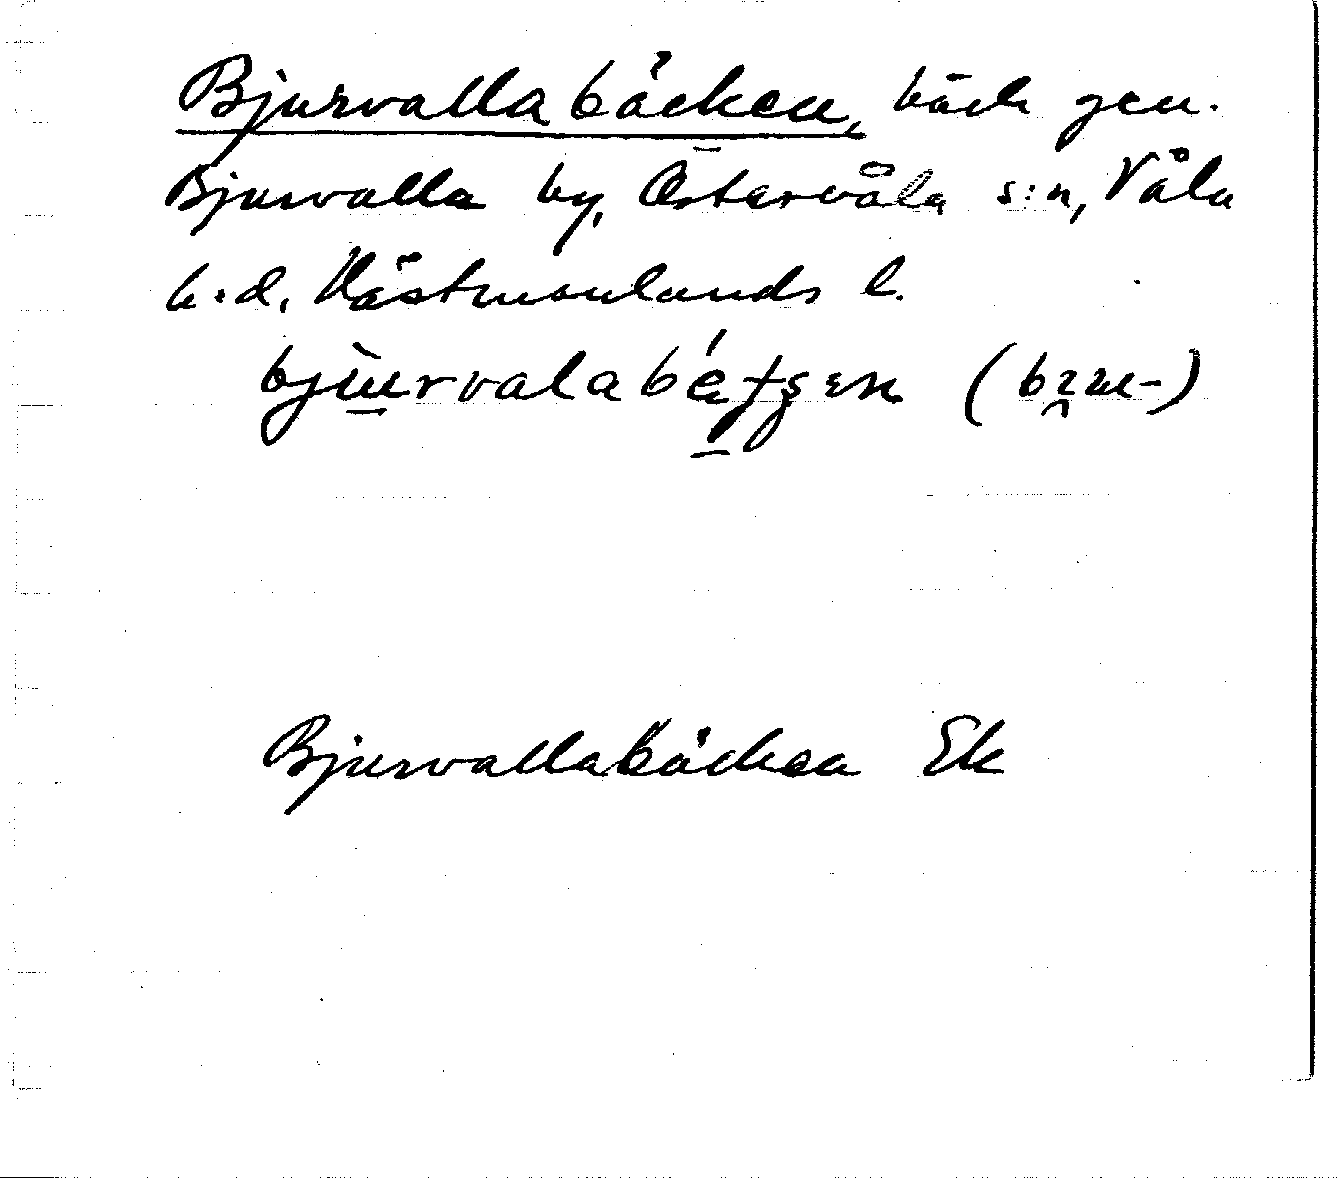 Bjurvallabäcken, bäck gen.
Bjurvalla by, Östervåla s:n, Våla
h.d. Västmanlands l.
Bjurvallabäcken Ek